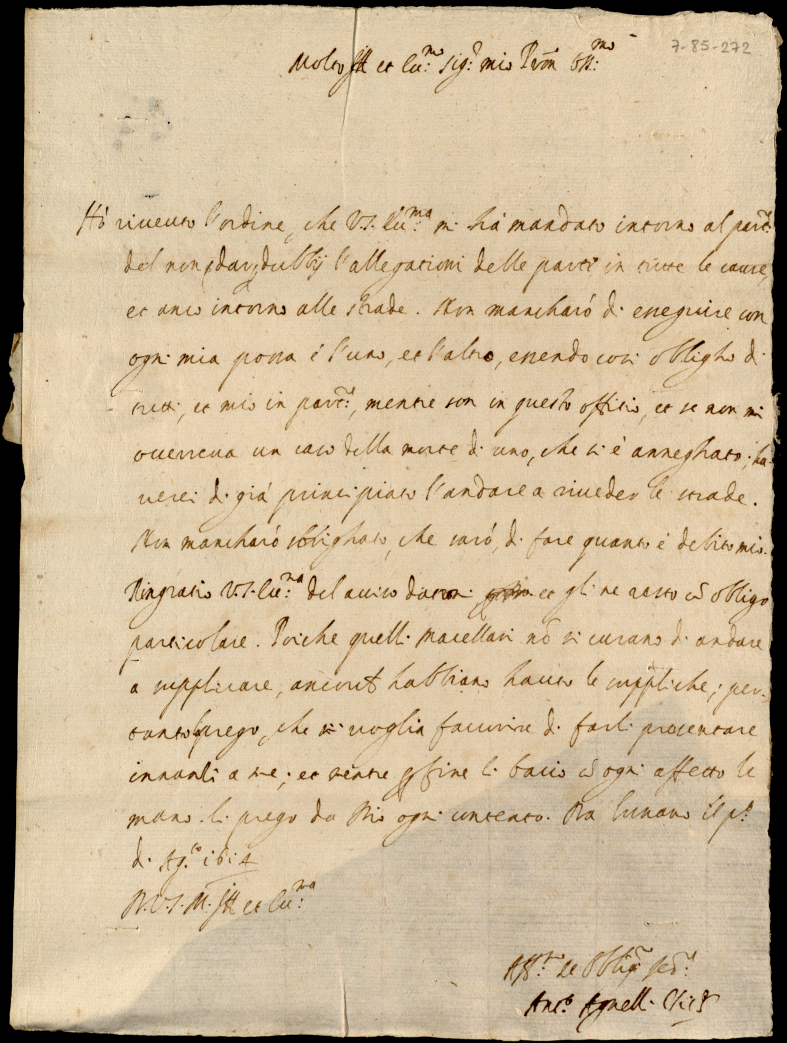 7-85-272
Molto Ill et Ecc.mo Sig.r mio P̃ron Oss.mo
Hò riceuuto l'ordine, che V.S. Ecc.ma mi hà mandato intorno al part.re
del non dar dubbij l'allegationi delle parti in tutte le cause,
et anco intorno alle strade. Non mancharó di esseguire con
ogni mia possa é l'uno, et l'altro, essendo cosi obligho di
tutti, et mio in part.re, mentre son in questo offitio, et se non mi
occorreua un caso della morte di uno, che si è anneghato, ha-
uerei di già principiato l'andare a riueder le strade.
Non mancharó obbighato, che saró, di fare quanto é debito mio.
Ringratio V.S. Ecc.ma del auiso datomi et gli ne resto cõ obligo
particolare. Poiche quelli Macellari nõ si curano di andare
a supplicare, ancorche habbiano hauuto le suppliche; per-
tanto prego, che si voglia fauorire di farli presentare
innanti a se; et mentre p fine li bacio cõ ogni affetto le
mano li prego da Dio ogni contento. Da Lunano il p.o
di Ag.to 1614
D.V.S. M. Ill et Ecc.ma
Aff.mo et Oblig.mo ser.re
Ant.o Agnelli